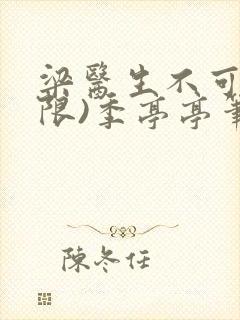 梁醫生不可
限)季亭亭筆
陳冬任